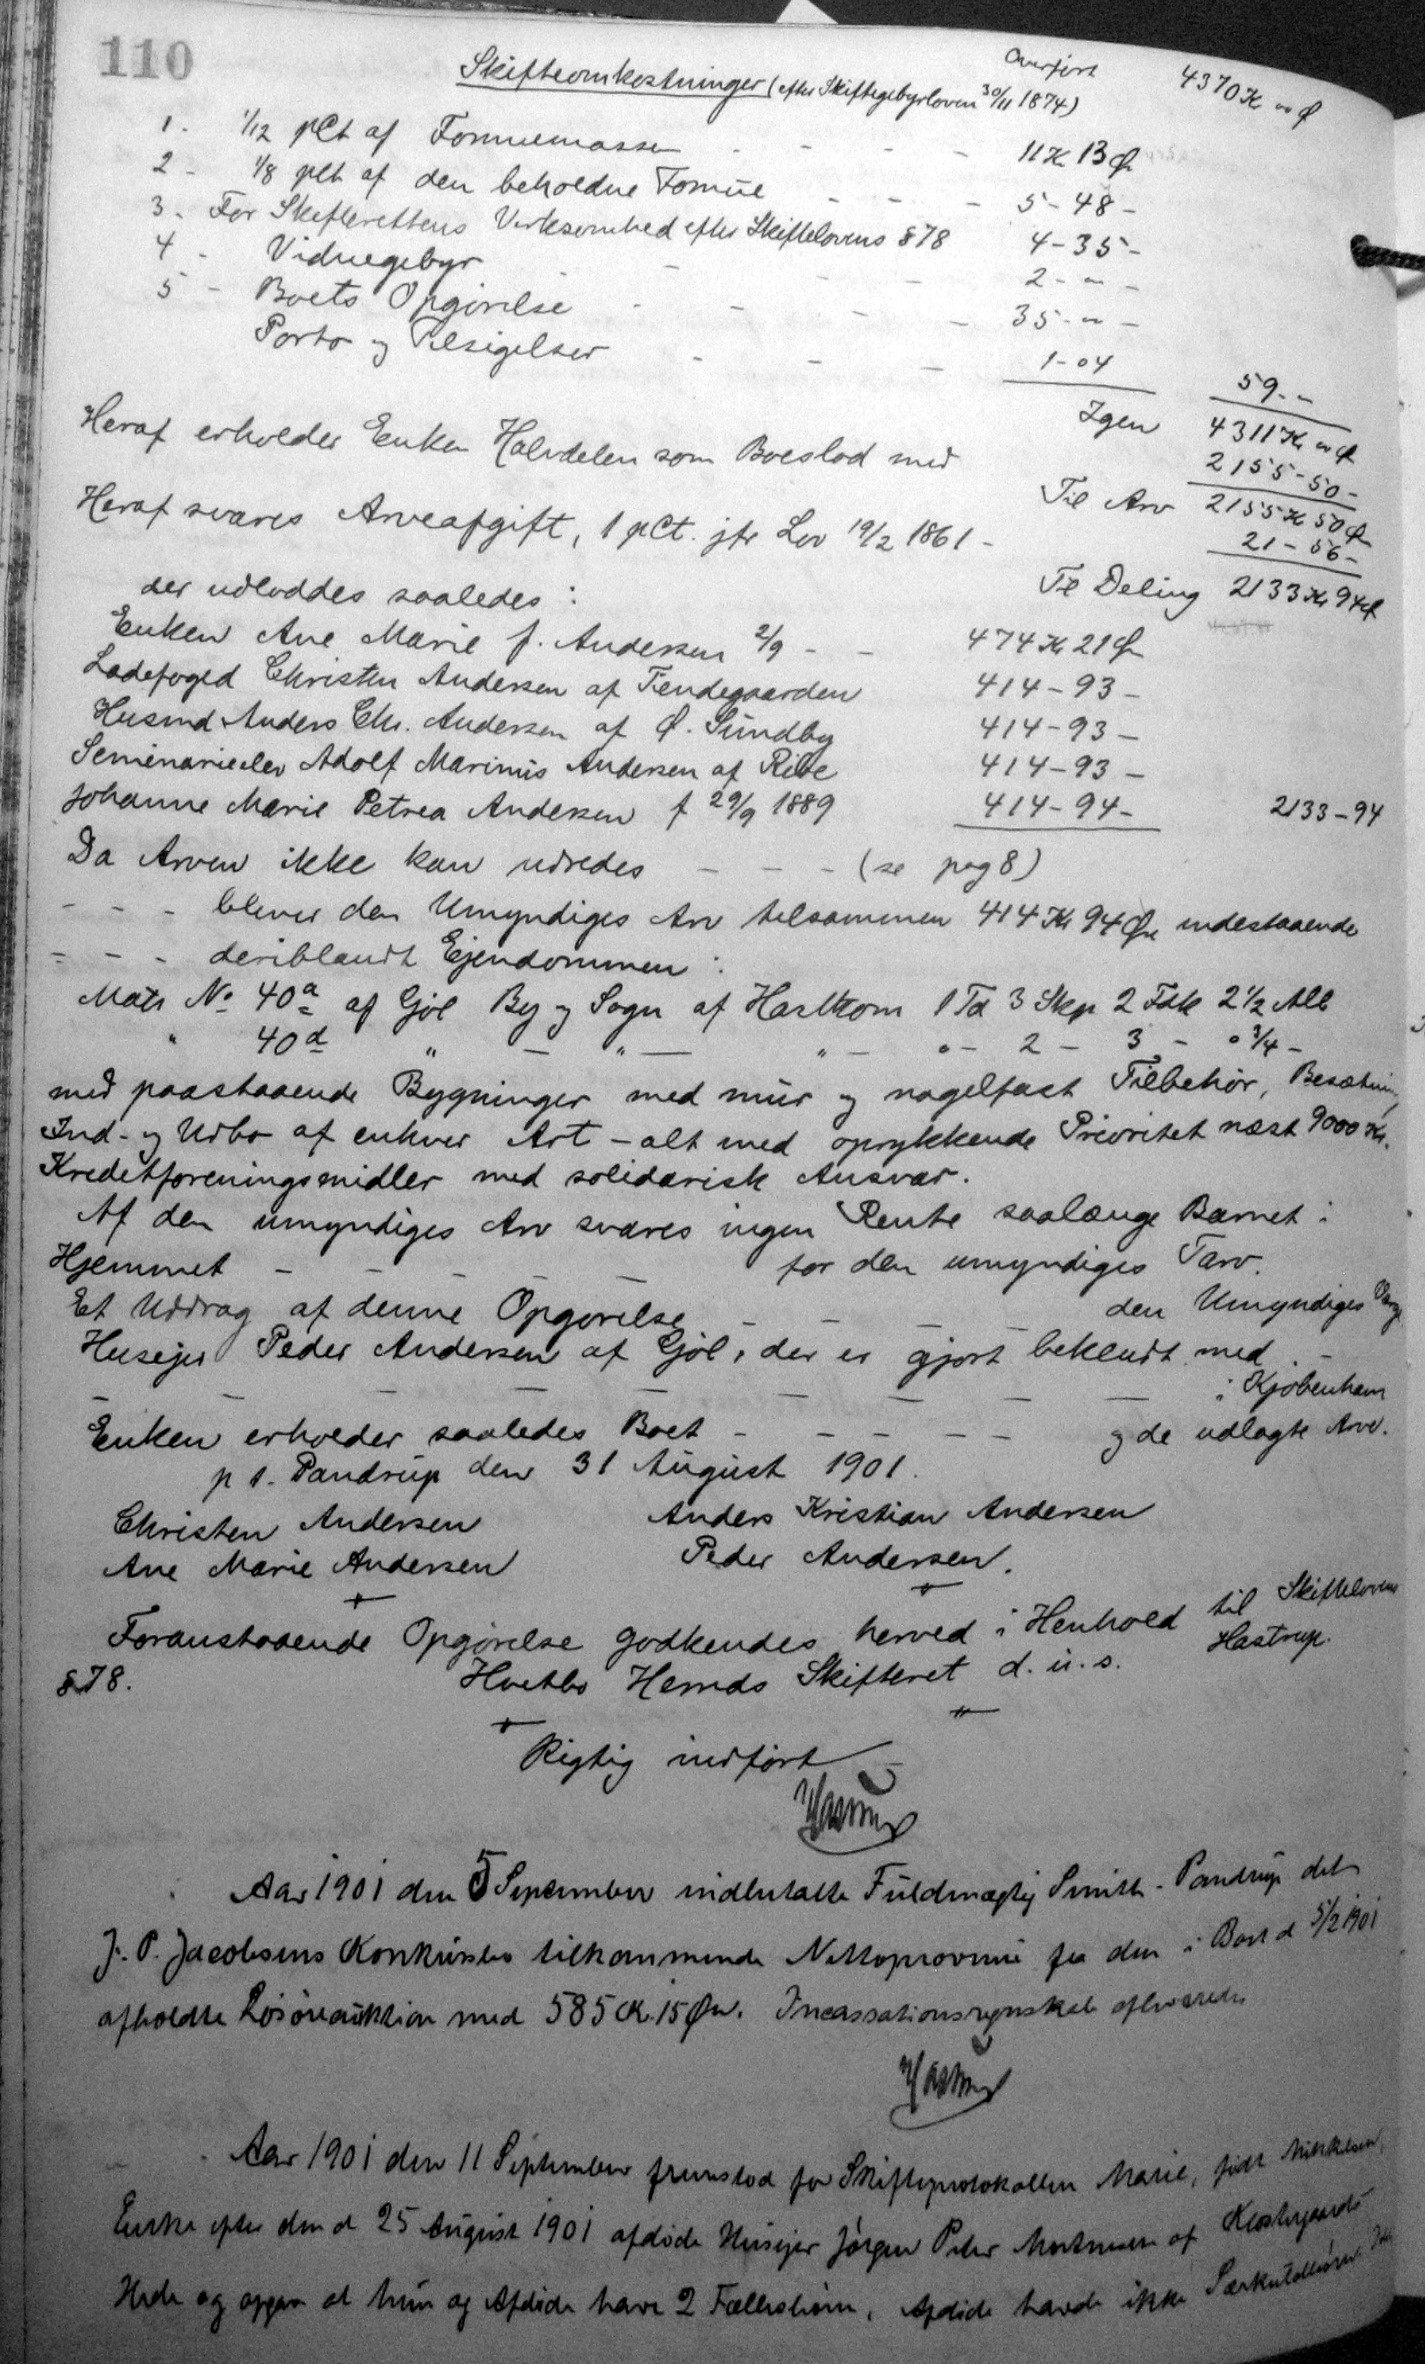 110
Overført 4370 K " Ø
Skifteomkostninger (efter Skiftegebyrloven 30/11 1874)
1. 1/12 pCt af Formuemassen - - - - 11 K 13 Ø
2 - 1/8 pCt af den beholdne Formue - - - 5 - 48 -
3. For Skifterettens Virksomhed efter Skiftelovens § 78 4 - 35 -
4 - Vidnegebyr - - - 2 - " -
5 - Boets Opgørelse - - - - 35 - " -
Porto og Tilsigelser - - - 1 - 04
59 - -
Igen 4311 K " Ø
Heraf erholder Enken Halvdelen som Boeslod med 2155 - 50 -
Til Arv 2155 K 50 Ø
Heraf svares Arveafgift, 1 pCt. jfr Lov 19/2 1861 - 21 - 56 -
Til Deling 2133 Kr 94 Ø
der udloddes saaledes :
Enken Ane Marie f. Andersen 2/9 - - 474 Kr 21 Ø
Ladefoged Christen Andersen af Tiendegaarden 414 - 93 -
Husmd Anders Chr. Andersen af Ø. Sundby 414 - 93 -
Seminarieelev Adolf Marinus Andersen af Ribe 414 - 93 -
Johanne Marie Petrea Andersen f 29/9 1889 414 - 94 - 2133 - 94
Da Arven ikke kan udredes - - - (se pag 8)
- - - bliver den Umyndiges Arv tilsammen 414 Kr 94 Øre indestaaende
- - - deriblandt Ejendommen :
Matr No 40a af Gjøl By og Sogn af Hartkorn 1 Td 3 Skp 2 Fdk 2 1/2 Alb
" 40d " - " - " - " - 2 - 3 - " 3/4 -
med paastaaende Bygninger med mur og nagelfast Tilbehør, Besætning,
Ind- og Udbo af enhver Art - alt med oprykkende Prioritet næst 9000 Kr.
Kreditforeningsmidler med solidarisk Ansvar.
Af den umyndiges Arv svares ingen Rente saalænge Barnet i
Hjemmet - - - - for den umyndiges Tarv.
Et Uddrag af denne Opgørelse - - - den Umyndiges Værge
Husejer Peder Andersen af Gjøl, der er gjort bekendt med -
- - - - - - - - - i Kjøbenhavn
Enken erholder saaledes Boet - - - - - og de udlagte Arv.
p t. Pandrup den 31 August 1901.
Christen Andersen Anders Kristian Andersen
Ane Marie Andersen Peder Andersen.
Foranstaaende Opgørelse godkendes herved i Henhold til Skiftelovens
§ 78. Hvetbo Herreds Skifteret d. u. s. Hastrup.
Rigtig indført
Hastrup
Aar 1901 den 5 September indbetalte Fuldmægtig Smith - Pandrup det
J. P. Jacobsens Konkursbo tilkommende Nettoprovenu fra den i Boet d 5/2 1901
afholdte Løsøreauktion med 585 Kr. 15 Øre. Incassationsregnskab afleveredes
Hastrup
Aar 1901 den 11 September fremstod for Skifteprotokollen Marie, født Mikkelsen,
Enke efter den d 25 August 1901 afdøde Husejer Jørgen Peter Mortensen af Klostergaards
Hede og opgav at hun og Afdøde have 2 Fællesbørn, Afdøde havde ikke Særkuldbørn